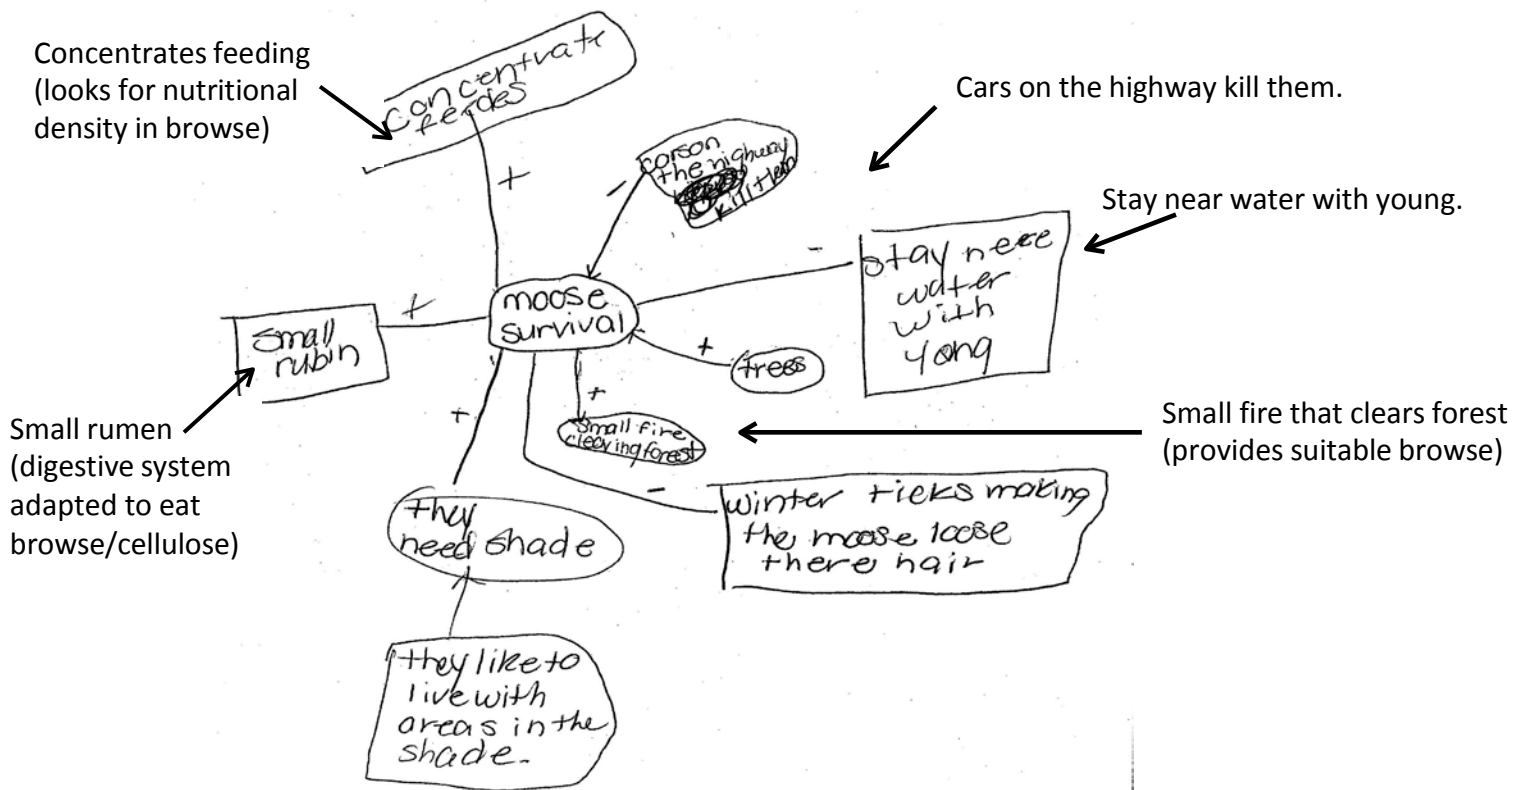 Concentrates feeding
(looks for nutritional
density in browse)
concentrate
feedes
+
Cars on the highway kill them.
carson
the highway
kill them
-
Stay near water with young.
stay nere
water
with
yong
-
moose
survival
+
small
rubin
+
trees
+
small fire
clearing forest
Small fire that clears forest
(provides suitable browse)
Small rumen
(digestive system
adapted to eat
browse/cellulose)
+
they
need shade
-
winter ticks making
the moose loose
there hair
they like to
live with
areas in the
shade.